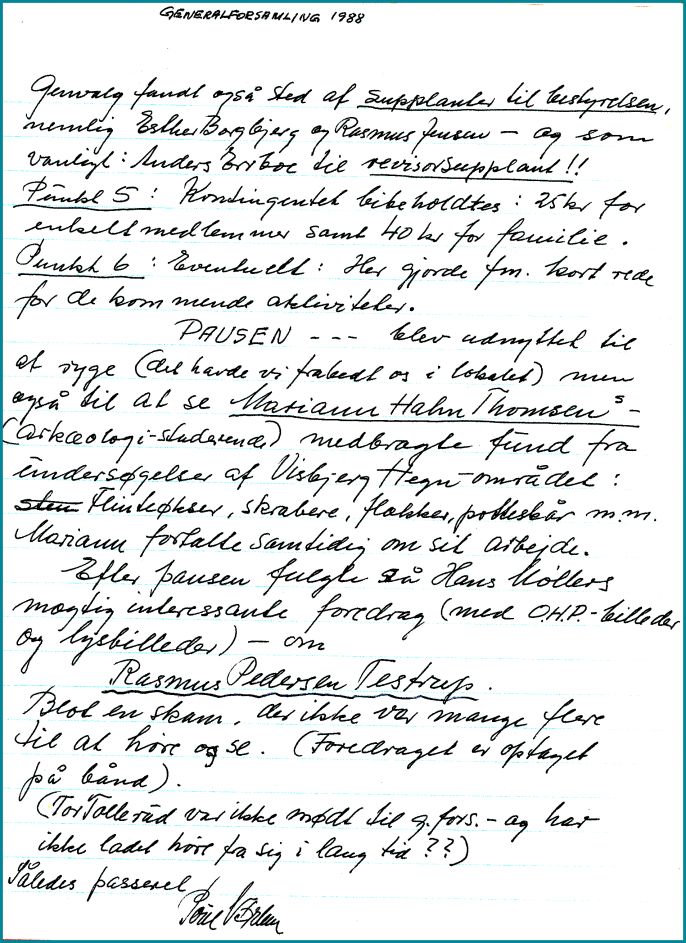 GENERALFORSAMLING 1988
Genvalg fandt også sted af supplanter til bestyrelsen,
nemlig Esther Borgbjerg og Rasmus Jensen – og som
vanligt: Anders Errboe til revisorsupplant!!
Punkt 5: Kontingentet bibeholdtes: 25 kr for
enkeltmedlemmer samt 40 kr for familie.
Punkt 6: Eventuelt: Her gjorde fm. kort rede
for de kommende aktiviteter.
PAUSEN --- blev udnyttet til
at ryge (det havde vi frabedt os i lokalet) men
også til at se Mariann Hahn Thomsens –
(arkæologi-studerende) medbragte fund fra
undersøgelser af Visbjerg Hegn-området:
Flintøkser, skrabere, flækker, potteskår m.m.
Mariann fortalte samtidig om sit arbejde.
Efter pausen fulgte så Hans Møllers
mægtig interessante foredrag (med O.H.P.-billeder
og lysbilleder) – om
Rasmus Pedersen Testrup.
Blot en skam, der ikke var mange flere
til at høre og se. (Foredraget er optaget
på bånd).
(Tor Tolleråd var ikke mødt til g.fors. – og har
ikke ladet høre fra sig i lang tid ??)
Således passeret
Poul